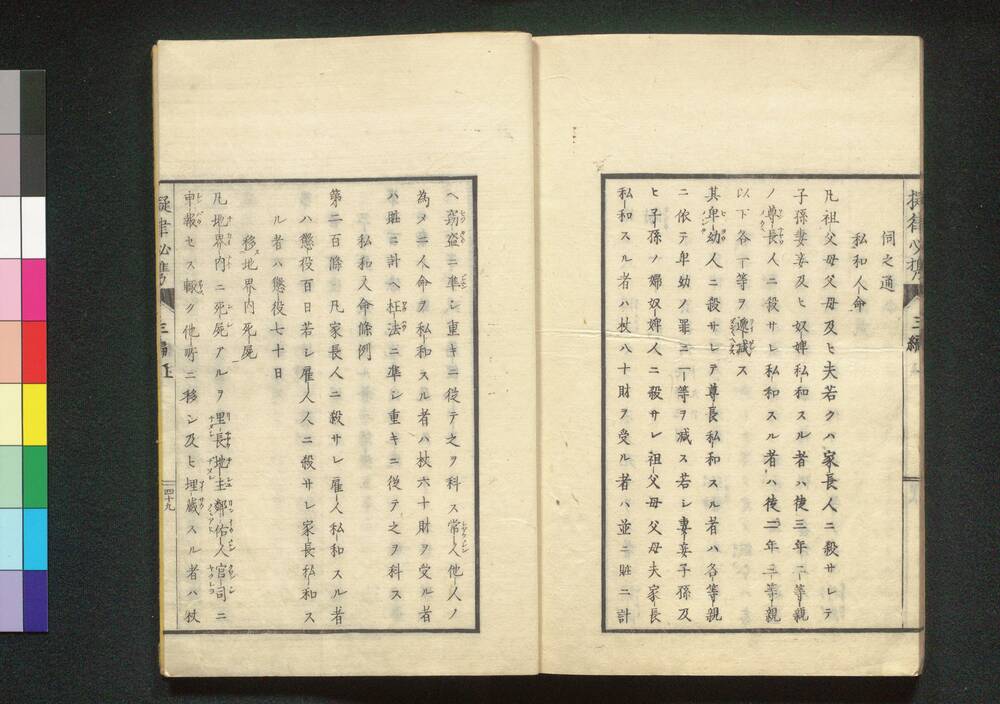 伺之通
私和人命
凡祖父母父母及ヒ夫若クハ家長人ニ殺サレテ
子孫妻妾及ヒ奴婢私和スル者ハ徒三年二等親
ノ尊長人ニ殺サレ私和スル者ハ徒二年三等親
以下各一等ヲ遞減ス
其卑幼人ニ殺サレテ尊長私和スル者ハ各等親
ニ依テ卑幼ノ罪ニ一等ヲ減ス若シ妻妾子孫及
ヒ子孫ノ婦奴婢人ニ殺サレ祖父母父母夫家長
私和スル者ハ杖八十財ヲ受ル者ハ並ニ贓ニ計
ヘ窃盗ニ準シ重キニ従テ之ヲ科ス常人他人ノ
為メニ人命ヲ私和スル者ハ杖六十財ヲ受ル者
ハ贓ニ計ヘ枉法ニ準シ重キニ従テ之ヲ科ス
私和人命條例
第二百 條 凡家長人ニ殺サレ雇人私和スル者
ハ懲役百日若シ雇人人ニ殺サレ家長私和ス
ル者ハ懲役七十日
移地界内死屍
凡地界内ニ死屍アルヲ里長地主鄰佑人官司ニ
申報セス輙ク他所ニ移シ及ヒ埋蔵スル者ハ杖
擬律必携
三編
四十九